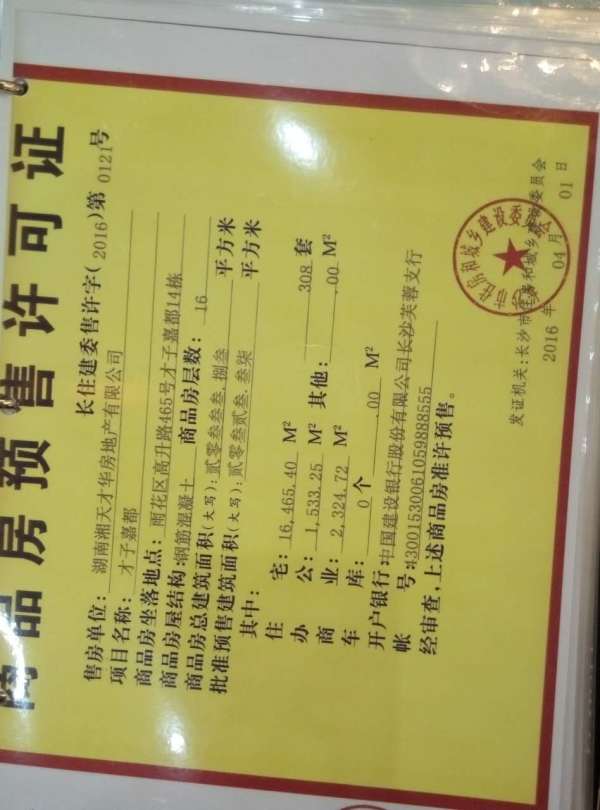 商品房预售许可证
长住建委售许字(2016)第0121号
售房单位：湖南湘天才华房地产有限公司
项目名称：才子嘉都
商品房坐落地点：雨花区高升路465号才子嘉都14栋
商品房屋结构：钢筋混凝土 商品房层数：16
商品房总建筑面积(大写)：贰零叁叁叁.捌叁 平方米
批准预售建筑面积(大写)：贰零叁贰叁.叁柒 平方米
其中：
住宅：16,465.40 M² 308 套
办公：1,533.25 M² 其他：.00 M²
商业：2,324.72 M²
车库：0 个 .00 M²
开户银行：中国建设银行股份有限公司长沙芙蓉支行
帐号：43001530061059888555
经审查，上述商品房准许预售。
发证机关：长沙市住房和城乡建设委员会
2016 年 04 月 01 日